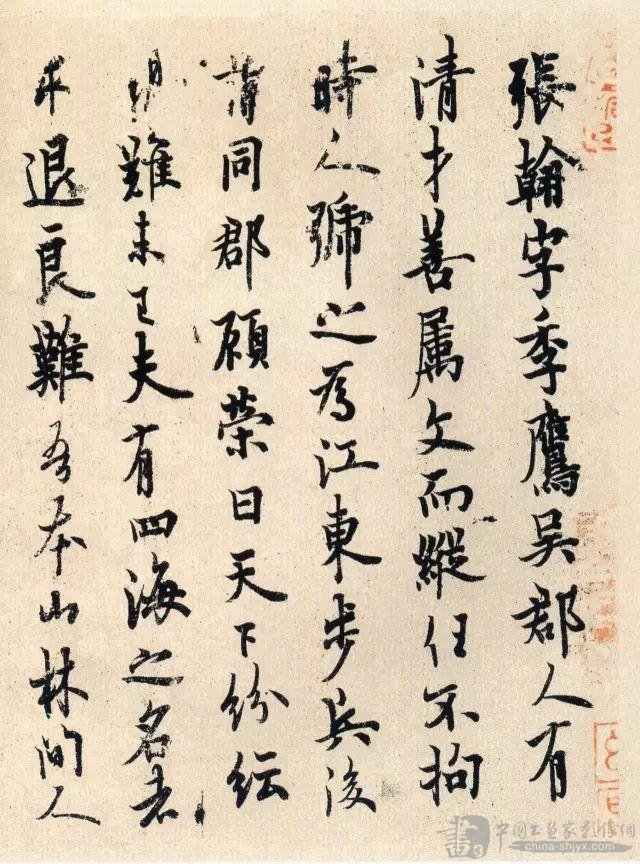 張翰字季鷹吳郡人有
清才善屬文而縱任不拘
時人號之為江東步兵後
謂同郡顧榮曰天下紛紜
禍難未已夫有四海之名者
求退良難吾本山林間人
書
中國书画家影像網
www.china-shjyx.com